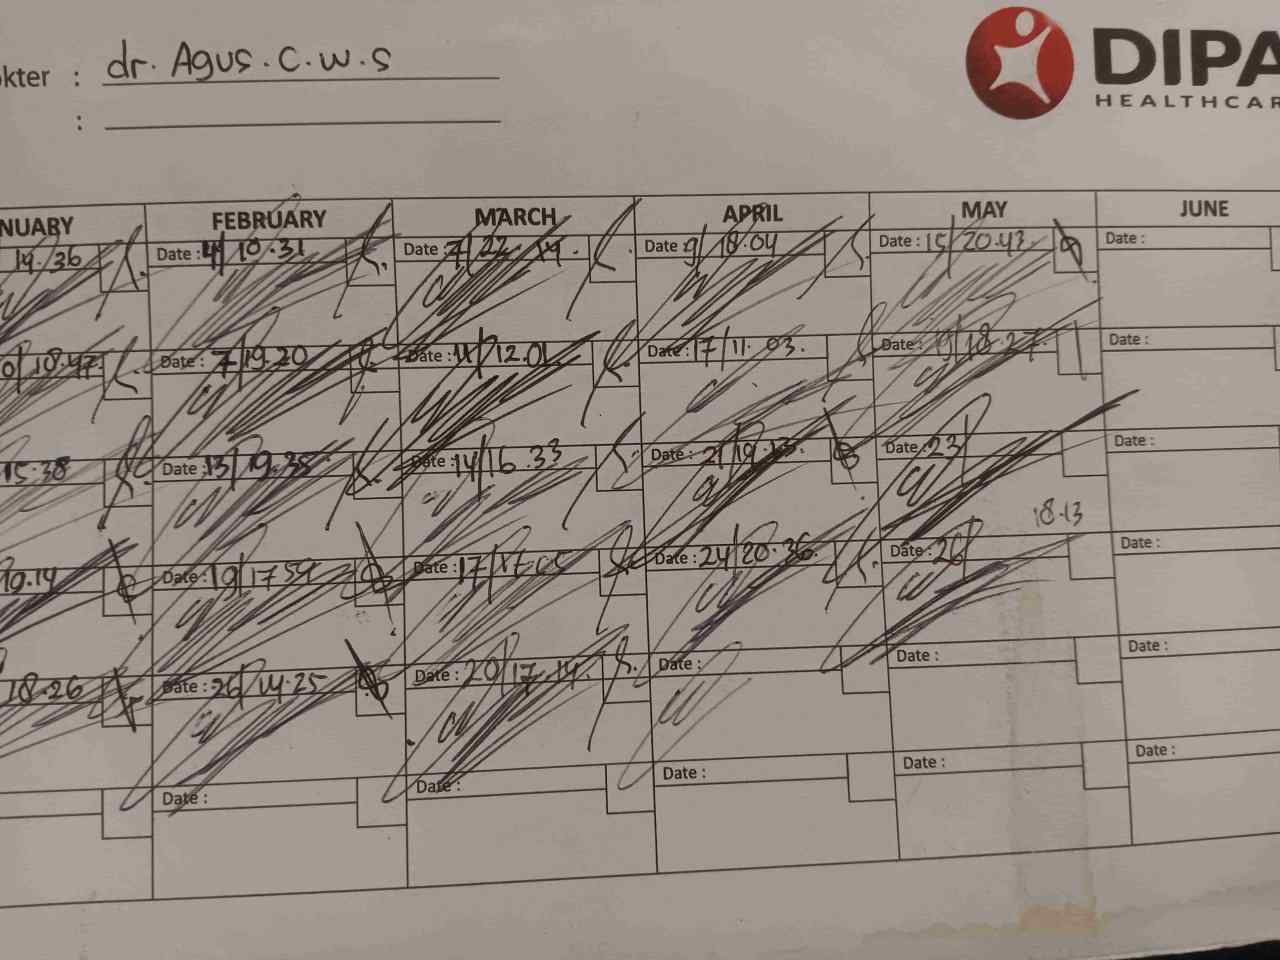 okter : dr. Agus. C. W. S
:
DIPA
HEALTHCAR
NUARY FEBRUARY MARCH APRIL MAY JUNE
14.36 Date : 4/ 10.31 Date : 7/ 22 Date : 9/ 18.04 Date : 15/ 20.43 Date :
18.47 Date : 7/ 19.20 Date : 11/ 12.01 Date : 17/ 11.03. Date : 19/ 18.27 Date :
15.38 Date : 13/ 19.35 Date : 14/ 16.33 Date : 21/ 19.13. Date : 23/ Date :
18.13
19.14 Date : 19/ 17 59 Date : 17/ 17.05 Date : 24/ 20.36. Date : 26/ Date :
18.26 Date : 26/ 14.25 Date : 20/ 17.14. Date : Date : Date :
Date : Date : Date : Date : Date :